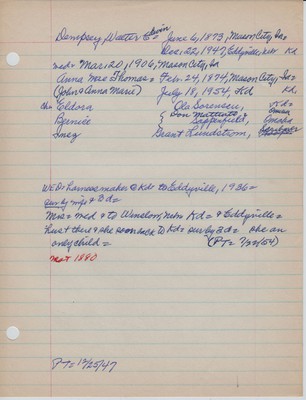 Dempsey, Walter Edwin June 6, 1873, Mason City, Ia
Dec. 22, 1947, Eddyville, Nebr Kd
med = Mar. 20, 1906, Mason City, Ia
Anna Mae Thomas = Feb. 24, 1874, Mason City, Ia
(John & Anna Marie) July 18, 1954, Kd Kd.
ch = Eldora Ole Sorensen, Kd =
Bernice & Don Omaha
Imog Grant Lundstrom,
WED: harness maker @ Kd = to Eddyville, 1936 =
sur by wife & 3 d =
Mrs = med & to Winslow, Nebr Kd = & Eddyville =
hus + there & she soon back to Kd = sur by 3 d = she an
only child = (PT = 7/22/54)
next 1880
PT = 12/25/47